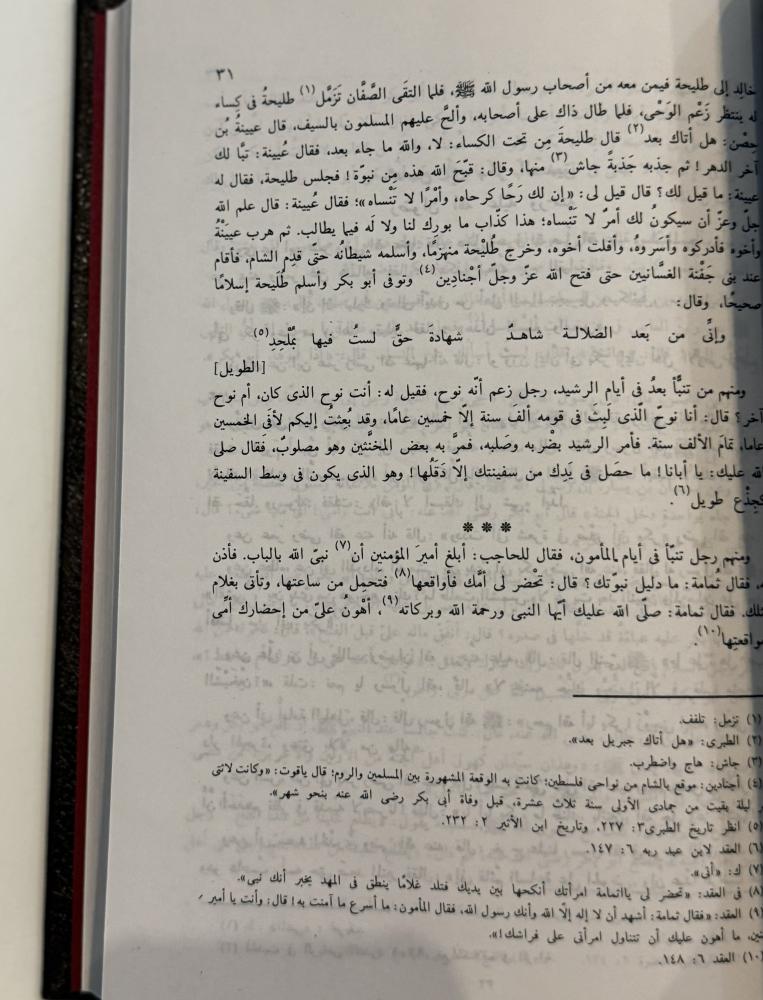 ٣١
خالد إلى طليحة فيمن معه من أصحاب رسول الله ﷺ، فلما التقَى الصَّفَّان تَزَمَّل(١) طليحةُ فى كِساء
له ينتظر زَعْم الوَحْى، فلما طال ذاك على أصحابه، وألحَّ عليهم المسلمون بالسيف، قال عيينةُ بْن
حِصْن: هل أتاك بعد(٢) قال طليحةَ مِن تحت الكساء: لا، والله ما جاء بعد، فقال عُيينة: تبًّا لك
آخر الدهر! ثم جذبه جَذبةً جاش(٣) منها، وقال: قبَّحَ الله هذه مِن نبوّة! فجلس طليحة، فقال له
عيينة: ما قيل لك؟ قال قيل لى: «إن لك رَحًا كرحاه، وأمْرًا لا تَنْساه»؛ فقال عُيينة: قال علم الله
جلّ وعزّ أن سيكونُ لك أمرٌ لا تَنْساه؛ هذا كذّاب ما بورِك لنا ولا لَه فيما يطالب. ثم هرب عيينْةُ
وأخوه فأدركوه وأسَروهُ، وأفلت أخوه، وخرج طُلَيْحة منهزمًا، وأسلمه شيطانُه حتّى قدِم الشام، فأقام
عند بنى جَفْنة الغسَّانيين حتى فتح الله عزّ وجلّ أجْنادِين(٤) وتوفى أبو بكر وأسلم طُلَيحة إسلامًا
صحيحًا، وقال:
وإنِّى من بَعد الضلالة شاهدٌ شهادةَ حقٍّ لستُ فيها بمُلْحِدِ(٥)
[الطويل]
ومنهم من تنبَّأ بعدُ فى أيام الرشيد، رجل زعم أنّه نوح، فقيل له: أنت نوح الذى كان، أم نوح
آخر؟ قال: أنا نوحٌ الّذى لَبِثَ فى قومه ألفَ سنة إلّا خمسين عامًا، وقد بُعثتُ إليكم لأفى الخمسين
عاما، تمامَ الألف سنة. فأمر الرشيد بضْربه وصَلبه، فمرَّ به بعض المخنَّثين وهو مصلوبٌ، فقال صلى
الله عليك: يا أبانا! ما حصَل فى يَدِك من سفينتك إلّا دَقَلُها! وهو الذى يكون فى وسط السفينة
كجِذْع طويل(٦).
***
ومنهم رجل تنبّأ فى أيام المأمون، فقال للحاجب: أبلغ أميرَ المؤمنين أن(٧) نبىّ الله بالباب. فأذن
له، فقال ثُمامة: ما دليل نبوّتك؟ قال: تحُضر لى أمَّك فأواقعها(٨) فتَحمِل من ساعتها، وتأتى بغلام
مثلك. فقال ثمامة: صلّى الله عليك أيّها النبى ورحمة الله وبركاته(٩)، أهْونُ علىّ من إحضارك أمِّى
مواقعتِها(١٠).
(١) تزمل: تلفف.
(٢) الطبرى: «هل أتاك جبريل بعد».
(٣) جاش: هاج واضطرب.
(٤) أجنادين: موقع بالشام من نواحى فلسطين؛ كانت به الوقعة المشهورة بين المسلمين والروم؛ قال ياقوت: «وكانت لاثنتى
ليلة بقيت من جمادى الأولى سنة ثلاث عشرة، قبل وفاة أبى بكر رضى الله عنه بنحو شهر».
(٥) انظر تاريخ الطبرى٣: ٢٢٧، وتاريخ ابن الأثير ٢: ٢٣٢.
(٦) العقد لابن عبد ربه ٦: ١٤٧.
(٧) ك: «أنى».
(٨) فى العقد: «تحضر لى ياثمامة امرأتك أنكحها بين يديك فتلد غلامًا ينطق فى المهد يخبر أنك نبى».
(٩) العقد: «فقال ثمامة: أشهد أن لا إله إلّا الله وأنك رسول الله، فقال المأمون: ما أسرع ما آمنت به! قال: وأنت يا أمير
ما أهون عليك أن تتناول امرأتى على فراشك!».
(١٠) العقد ٦: ١٤٨.